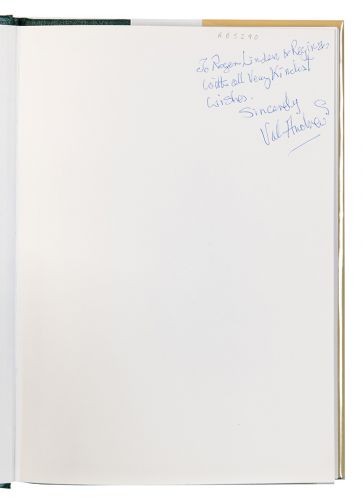 ABS290
To Roger Linden & Regina
with all Very Kindest
Wishes.
Sincerely
Val Andrews